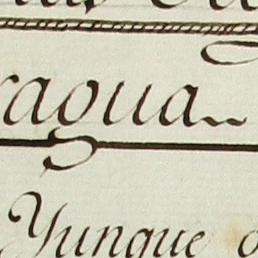 ragua
Yunque o